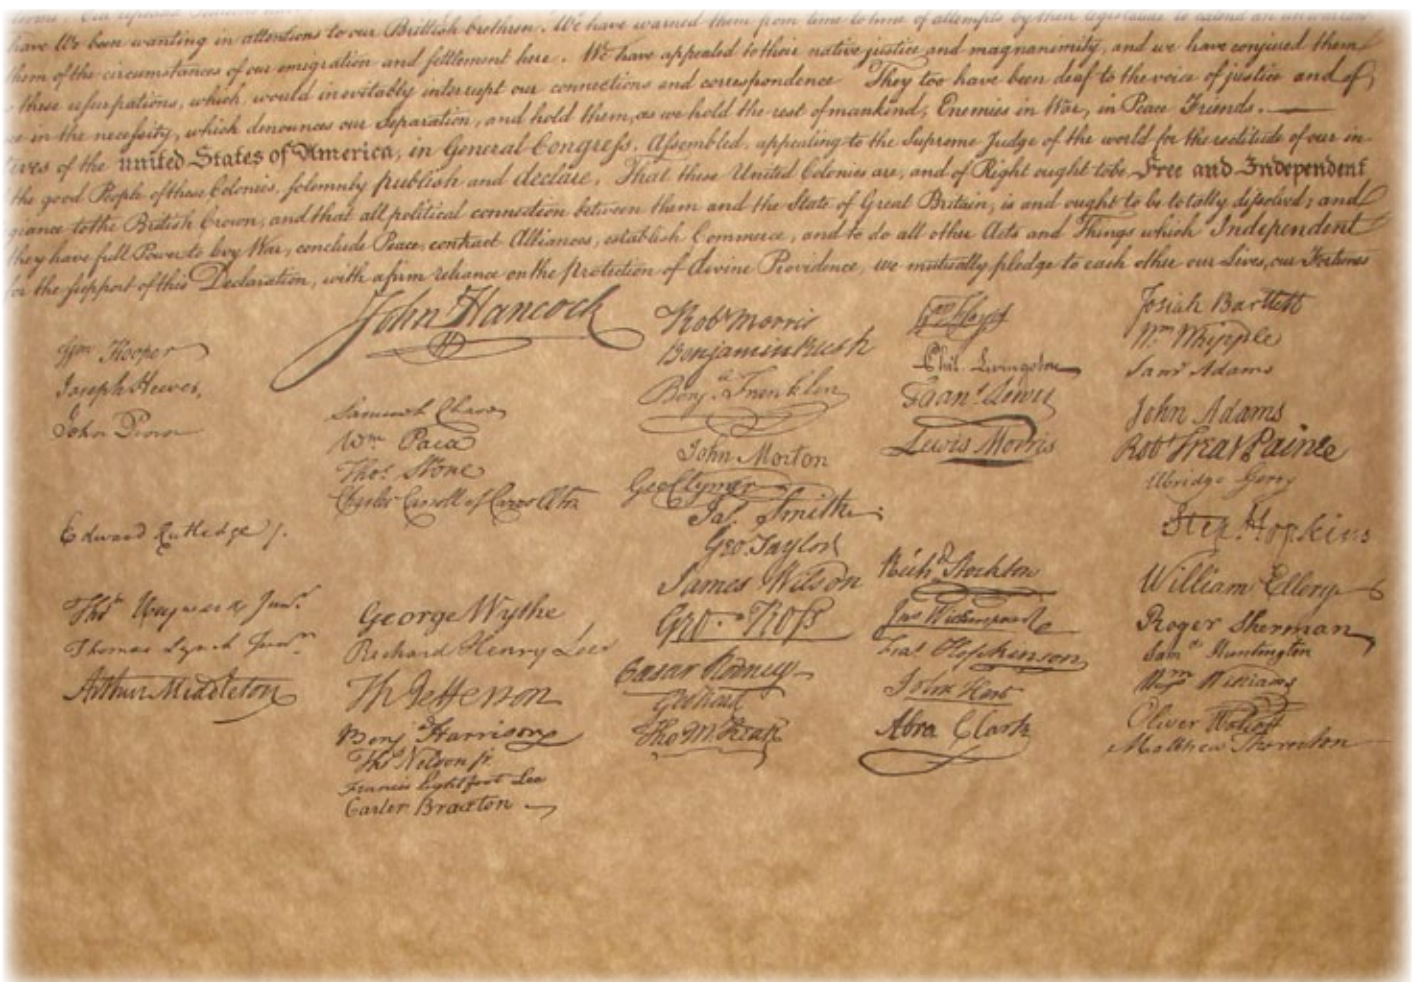 have We been wanting in attentions to our Brittish brethren. We have warned them from time to time of attempts by their legislature to extend an
them of the circumstances of our emigration and settlement here. We have appealed to their native justice and magnanimity, and we have conjured them
these usurpations, which, would inevitably interrupt our connections and correspondence They too have been deaf to the voice of justice and of
in the necessity, which denounces our Separation, and hold them, as we hold the rest of mankind, Enemies in War, in Peace Friends.
of the united States of America, in General Congress, Assembled, appealing to the Supreme Judge of the world for the rectitude of our in-
the good People of these Colonies, solemnly publish and declare, That these United Colonies are, and of Right ought to be Free and Independent
to the British Crown, and that all political connection between them and the State of Great Britain, is and ought to be totally dissolved; and
they have full Power to levy War, conclude Peace, contract Alliances, establish Commerce, and to do all other Acts and Things which Independent
for the support of this Declaration, with a firm reliance on the Protection of divine Providence, we mutually pledge to each other our Lives, our Fortunes
Wm Hooper
Joseph Hewes,
John Penn
Edward Rutledge /.
Thos Heyward Junr.
Thomas Lynch Junr.
Arthur Middleton
John Hancock
Samuel Chase
Wm Paca
Thos. Stone
Charles Carroll of Carrollton
George Wythe
Richard Henry Lee
Th Jefferson
Benj Harrison
Thos Nelson jr.
Francis Lightfoot Lee
Carter Braxton
Robt Morris
Benjamin Rush
Benj. Franklin
John Morton
Geo Clymer
Jas. Smith
Geo. Taylor
James Wilson
Geo. Ross
Caesar Rodney
Geo Read
Tho M:Kean
Wm Floyd
Phil. Livingston
Frans. Lewis
Lewis Morris
Richd Stockton
Jno Witherspoon
Fras Hopkinson
John Hart
Abra Clark
Josiah Bartlett
Wm Whipple
Saml Adams
John Adams
Robt Treat Paine
Elbridge Gerry
Step. Hopkins
William Ellery
Roger Sherman
Saml Huntington
Wm Williams
Oliver Wolcott
Matthew Thornton